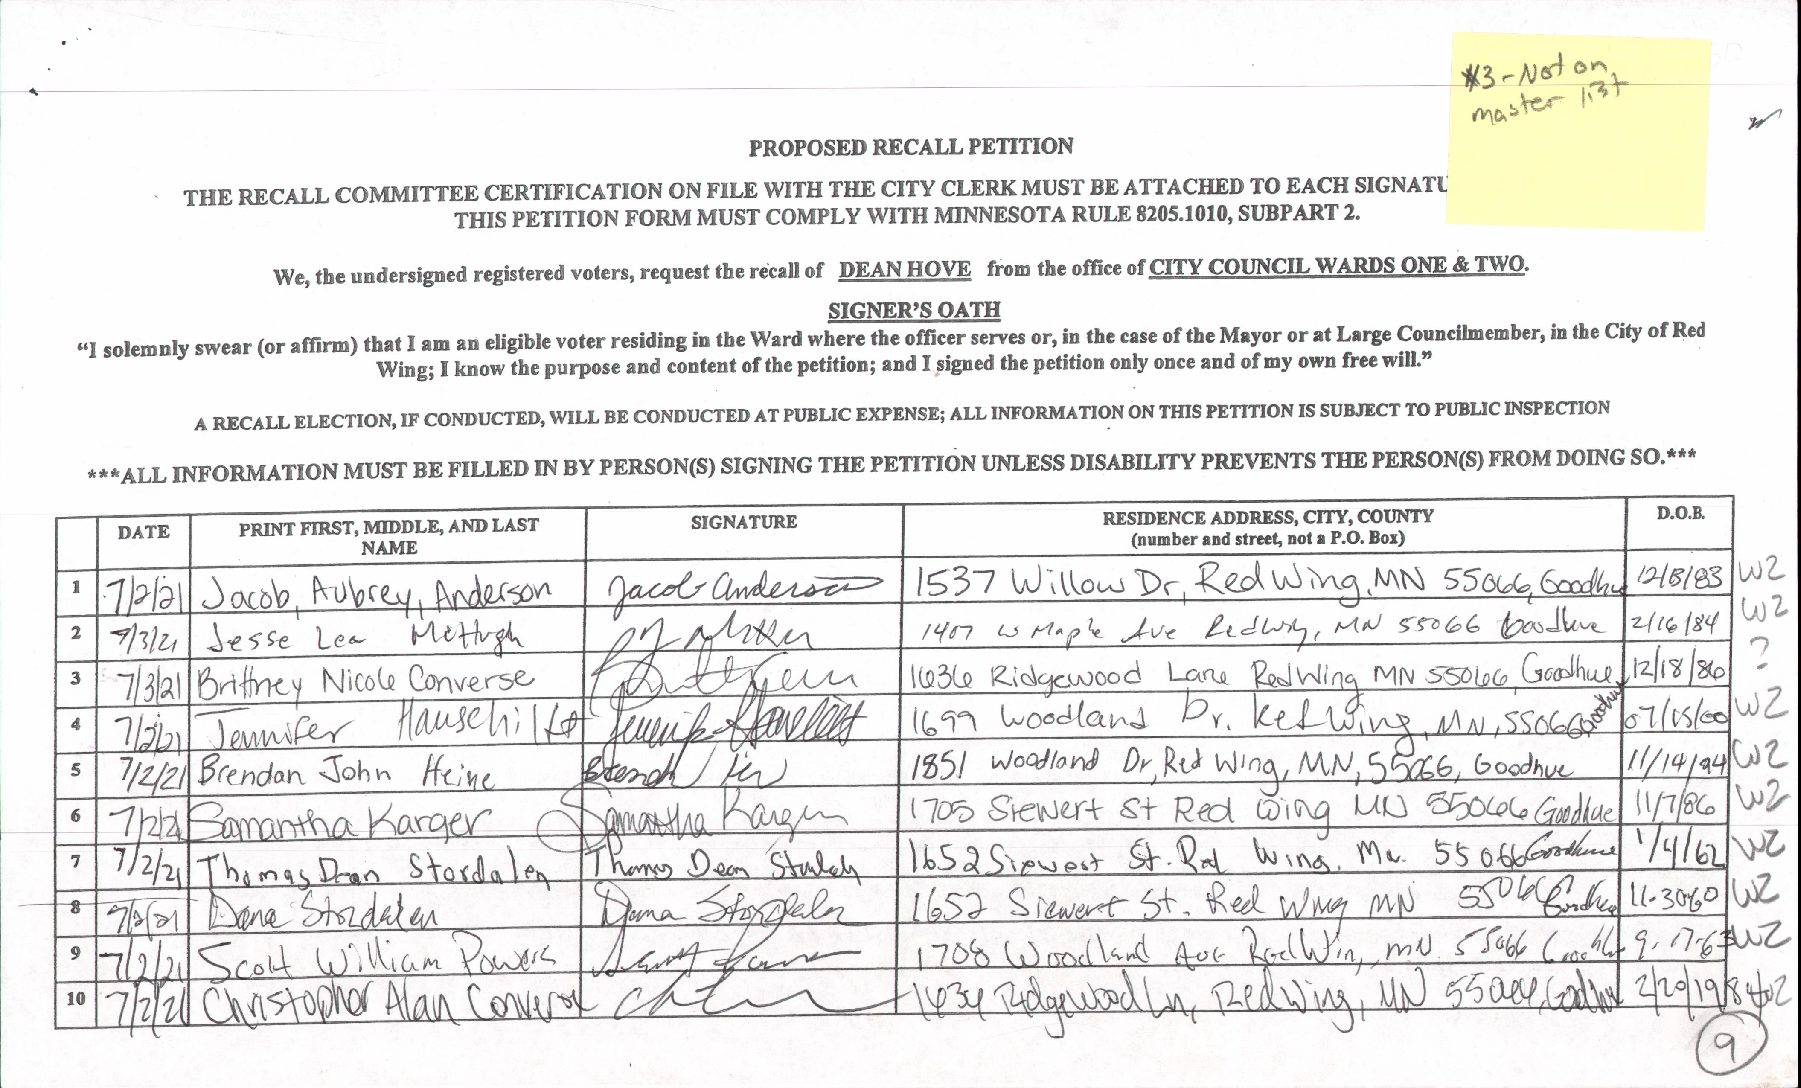 #3 - Not on
master list
PROPOSED RECALL PETITION
THE RECALL COMMITTEE CERTIFICATION ON FILE WITH THE CITY CLERK MUST BE ATTACHED TO EACH SIGNATU
THIS PETITION FORM MUST COMPLY WITH MINNESOTA RULE 8205.1010, SUBPART 2.
We, the undersigned registered voters, request the recall of DEAN HOVE from the office of CITY COUNCIL WARDS ONE & TWO.
SIGNER'S OATH
"I solemnly swear (or affirm) that I am an eligible voter residing in the Ward where the officer serves or, in the case of the Mayor or at Large Councilmember, in the City of Red
Wing; I know the purpose and content of the petition; and I signed the petition only once and of my own free will."
A RECALL ELECTION, IF CONDUCTED, WILL BE CONDUCTED AT PUBLIC EXPENSE; ALL INFORMATION ON THIS PETITION IS SUBJECT TO PUBLIC INSPECTION
***ALL INFORMATION MUST BE FILLED IN BY PERSON(S) SIGNING THE PETITION UNLESS DISABILITY PREVENTS THE PERSON(S) FROM DOING SO.***
DATE PRINT FIRST, MIDDLE, AND LAST NAME SIGNATURE RESIDENCE ADDRESS, CITY, COUNTY (number and street, not a P.O. Box) D.O.B.
1 7/2/21 Jacob, Aubrey, Anderson Jacob Anderson 1537 Willow Dr, Red Wing, MN 55066, Goodhue 12/8/83 W2
2 7/3/21 Jesse Lea McHugh 1407 W Maple Ave Redwing, MN 55066 Goodhue 2/16/84 W2
3 7/3/21 Brittney Nicole Converse 1636 Ridgewood Lane Red Wing MN 55066 Goodhue 12/18/86 ?
4 7/2/21 Jennifer Hauschildt 1699 Woodland Dr. Red Wing, MN, 55066 Goodhue 07/15/60 W2
5 7/2/21 Brendan John Heine 1851 Woodland Dr, Red Wing, MN, 55066, Goodhue 11/14/94 W2
6 7/2/21 Samantha Karger Samantha Karger 1705 Siewert St Red Wing MN 55066 Goodhue 11/7/86 W2
7 7/2/21 Thomas Dean Stordalen Thomas Dean 1652 Siewert St. Red Wing. Mn. 55066 Goodhue 1/4/62 W2
8 7/2/21 Dana Stordalen Dana Stordalen 1652 Siewert St. Red Wing MN 55066 Goodhue 11-30-60 W2
9 7/2/21 Scott William Powers 1708 Woodland Ave Red Win, MN 55066 9-17-63 W2
10 7/2/21 Christopher Alan Converse 1634 Ridgewood Ln, Red Wing, MN Goodhue 2/20/1984 W2
9